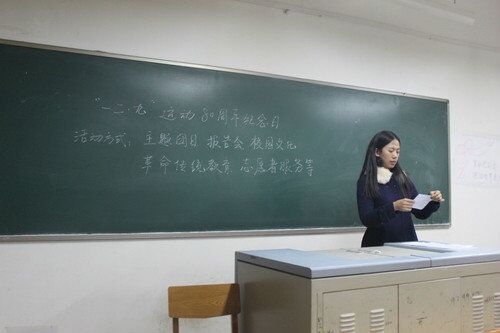 "一二·九"运动80周年纪念日
活动方式：主题团日 报告会 校园文化
革命传统教育 志愿者服务等